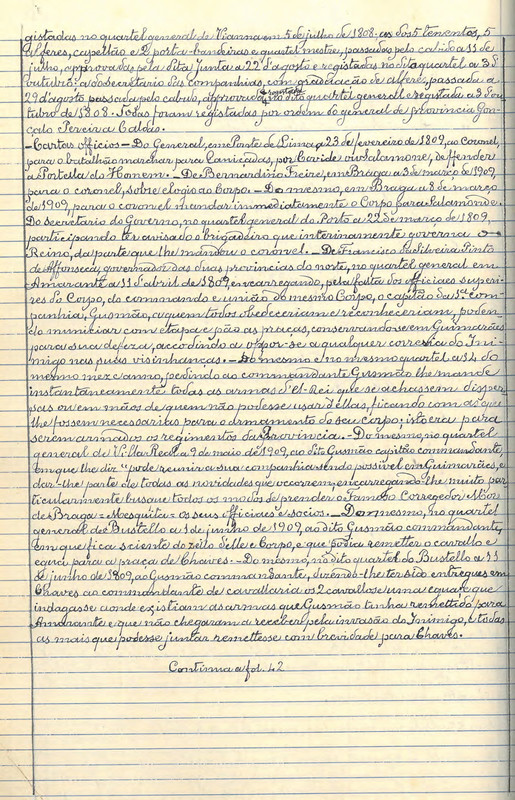 gistadas no quartel general de Vianna em 5 de julho de 1808: as dos 5 tenentes, 5
alferes, capellão e 2 porta-bandeiras e quartel mestre, passadas pelo cabido a 11 de
julho, approvadas pela dita Junta a 22 d'agosto e registadas no dito quartel a 3 d'
outubro: a do secretario das companhias, com graduação de alferes, passada a
29 d'agosto passada pelo cabido, approvada no dito quartel general e registada a 3 d'ou-
registada
tubro de 1808. Todas foram registadas por ordem do general de provincia Gon-
çalo Pereira Caldas.
— Cartas officios — Do General, em Ponte de Lima, a 23 de fevereiro de 1809, ao coronel,
para o batalhão marchar para Caniçadas, por Corvide via Salamone, defender
a Portella do Homem. — De Bernardino Freire, em Braga a 3 de março de 1909,
para o coronel, sobre elogio ao Corpo. — Do mesmo, em Braga a 8 de março
de 1909, para o coronel mandar immediatamente o Corpo para Salamonde.
Do secretario do Governo, no quartel general do Porto a 22 de março de 1809,
participando ter avisado o brigadeiro que interinamente governa o
Reino, da parte que lhe mandou o coronel. — De Francisco da Silveira Pinto
de Affonseca, governador das duas provincias do norte, no quartel general em
Amarante a 11 d'abril de 1809, encarregando, pela falta dos officiaes superio-
res do Corpo, do commando e união do mesmo Corpo, o capitão da 1ª com-
panhia, Gusmão, a quem todos obedeceriam e reconheceriam, poden-
do municiar com etapa e pão as praças, conservando-se em Guimarães
para sua defeza, accodindo a oppor-se a qualquer correria do Ini-
migo nas suas visinhanças. — Do mesmo e no mesmo quartel a 14 do
mesmo mez e anno, pedindo ao commandante Gusmão lhe mande
instantaneamente todas as armas d'El-Rei que se achassem disper-
sas ou em mãos de quem não podesse usar d'ellas, ficando com as que
lhe fossem necessarias para o armamento do seu corpo; isto era para
serem armados os regimentos da Provincia. — Do mesmo, no quartel
general de Villa Real a 9 de maio de 1909, ao dito Gusmão capitão commandante,
em que lhe diz "pode reunir a sua companhia sendo possivel em Guimarães, e
dar-lhe parte de todas as novidades que occorrem, encarregando-lhe muito par-
ticularmente busque todos os modos de prender o famoso Corregedor Mór
de Braga = Mesquita = os seus officiaes e socios. — Do mesmo, no quartel
general de Bustello a 1 de junho de 1909, ao dito Gusmão commandante,
em que fica sciente do zelo d'elle e Corpo, e que podia remetter o cavallo e
egua para a praça de Chaves. — Do mesmo, no dito quartel de Bustello a 11
de junho de 1809, ao Gusmão commandante, dizendo-lhe ter sido entregues em
Chaves ao commandante de cavallaria os 2 cavallos e uma egua e que
indagasse aonde existiam as armas que Gusmão tinha remettido para
Amarante e que não chegaram a receber, pela invasão do Inimigo, e todas
as mais que podesse juntar remettesse com brevidade para Chaves.
Continua a fol. 42